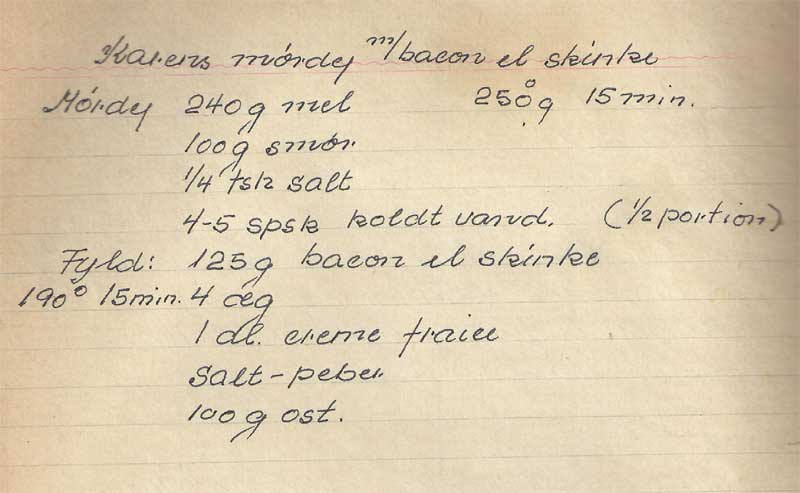 Karens mórdej m/bacon el skinke
Mórdej 240g mel 250° g 15 min.
100g smór
1/4 tsk salt
4-5 spsk koldt vand. (1/2 portion)
Fyld: 125g bacon el skinke
190° 15min. 4 æg
1 dl. creme fraice
Salt-peber
100g ost.